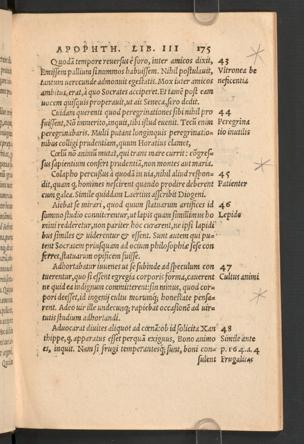 APOPHTH. LIB. III 175
Quodā tempore reuersus è foro, inter amicos dixit, 43
Emissem pallium si nummos habuissem. Nihil postulauit, Vltronea be
tantum uerecunde admonuit egestatis. Mox inter amicos neficentia
ambitus erat, à quo Socrates acciperet. Et tamē post eam
uocem quisquis properauit, ut ait Seneca, sero dedit.
Cuidam querenti quod peregrinationes sibi nihil pro 44
fuissent, Nō immerito, inquit, tibi istud euenit. Tecū enim Peregrina
peregrinabaris. Multi putant longinquis peregrinatio- tio inutilis
nibus colligi prudentiam, quum Horatius clamet,
Cœlū nō animū mutāt, qui trans mare currūt: cōgres-
sus sapientium confert prudentiā, non montes aut maria.
Colapho percussus à quodā in uia, nihil aliud respon- 45
dit, quam q̃ homines nescirent quando prodire deberent Patienter
cum galea. Simile quiddam Laertius asscribit Diogeni.
Aiebat se mirari, quod quum statuarum artifices id 46
summo studio conniterentur, ut lapis quam simillimus ho Lepide
mini redderetur, non pariter hoc curarent, ne ipsi lapidi
bus similes & uiderentur & essent. Sunt autem qui pu-
tent Socratem priusquam ad ocium philosophiæ sese con
ferret, statuarum opificem fuisse.
Adhortabatur iuuenes ut se subinde ad speculum con 47
tuerentur, quo si essent egregia corporis forma, cauerent Cultus animi
ne quid ea indignum committerent: sin minus, quod cor-
pori deesset, id ingenij cultu morumq́; honestate pensa-
rent. Adeo uir ille undecunq; rapiebat occasionē ad uir-
tutis studium adhortandi.
Aduocarat diuites aliquot ad cœnā: ob id solicita Xan 48
thippe, q̃ apparatus esset perquā exiguus, Bono animo Simile ante
es, inquit. Nam si frugi temperantesq́; sunt, boni con- p.164.a.4
sulent Frugalitas